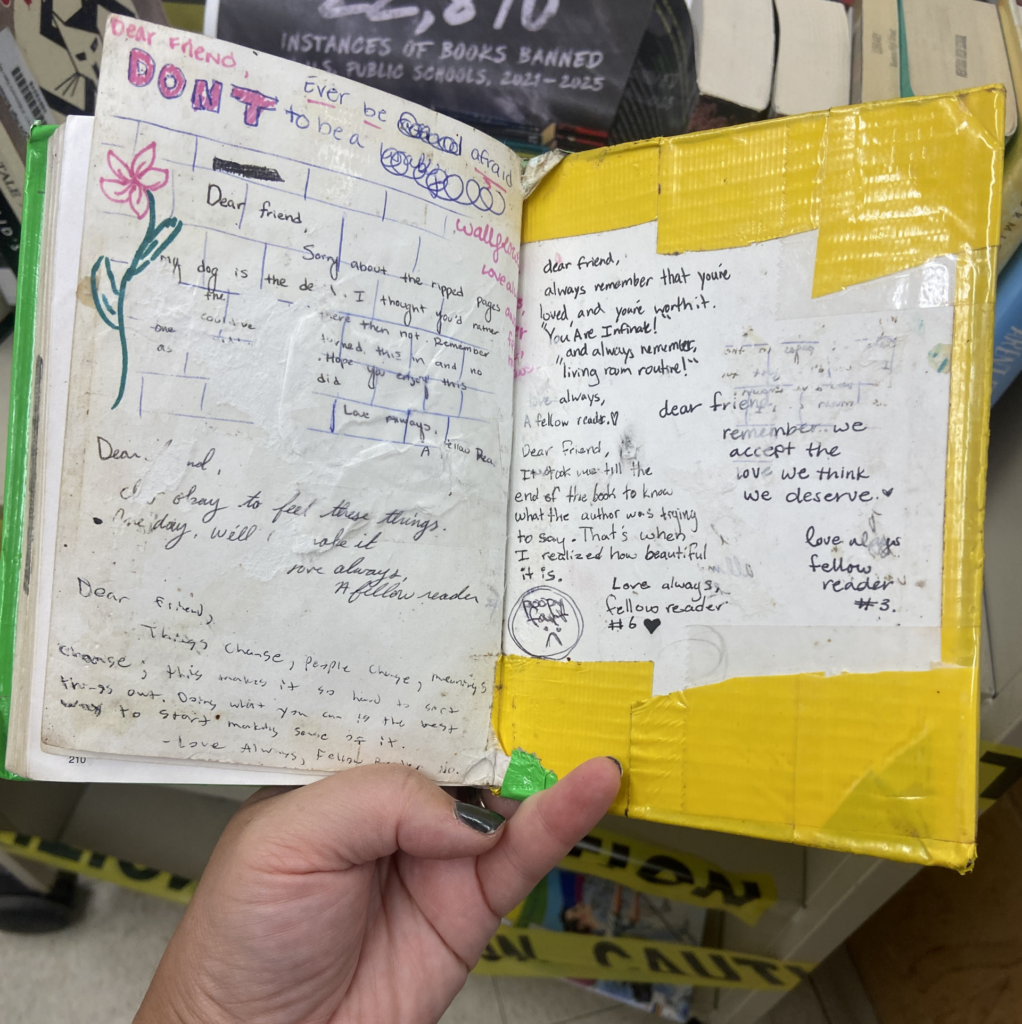 INSTANCES OF BOOKS BANNED
U.S. PUBLIC SCHOOLS, 2021-2025
Dear Friend,
DONT Ever be afraid
to be a
wallflower
Love always,
Dear friend,
Sorry about the ripped pages
my dog is the devil. I thought you'd rather
the there then not. Remember
one could've turned this in and no
as did. Hope you enjoy this
Love Always,
A Fellow Reader
Dear nd,
okay to feel these things.
One day, we'll make it
love always,
A fellow reader
Dear Friend,
Things change, people change, meanings
change; this makes it so hard to sort
things out. Doing what you can is the best
way to start making sense of it.
-Love Always, Fellow Reader
210
dear friend,
always remember that you're
loved and you're worth it.
"You Are Infinate!"
"and always remember,
"living room routine!"
love always,
A fellow reader ♡
Dear friend,
It took me till the
end of the book to know
what the author was trying
to say. That's when
I realized how beautiful
it is.
Love always,
fellow reader
#6 ♥
poopy
fart
dear friend,
remember we
accept the
love we think
we deserve. ♥
love always
fellow
reader
#3.
CAUTION